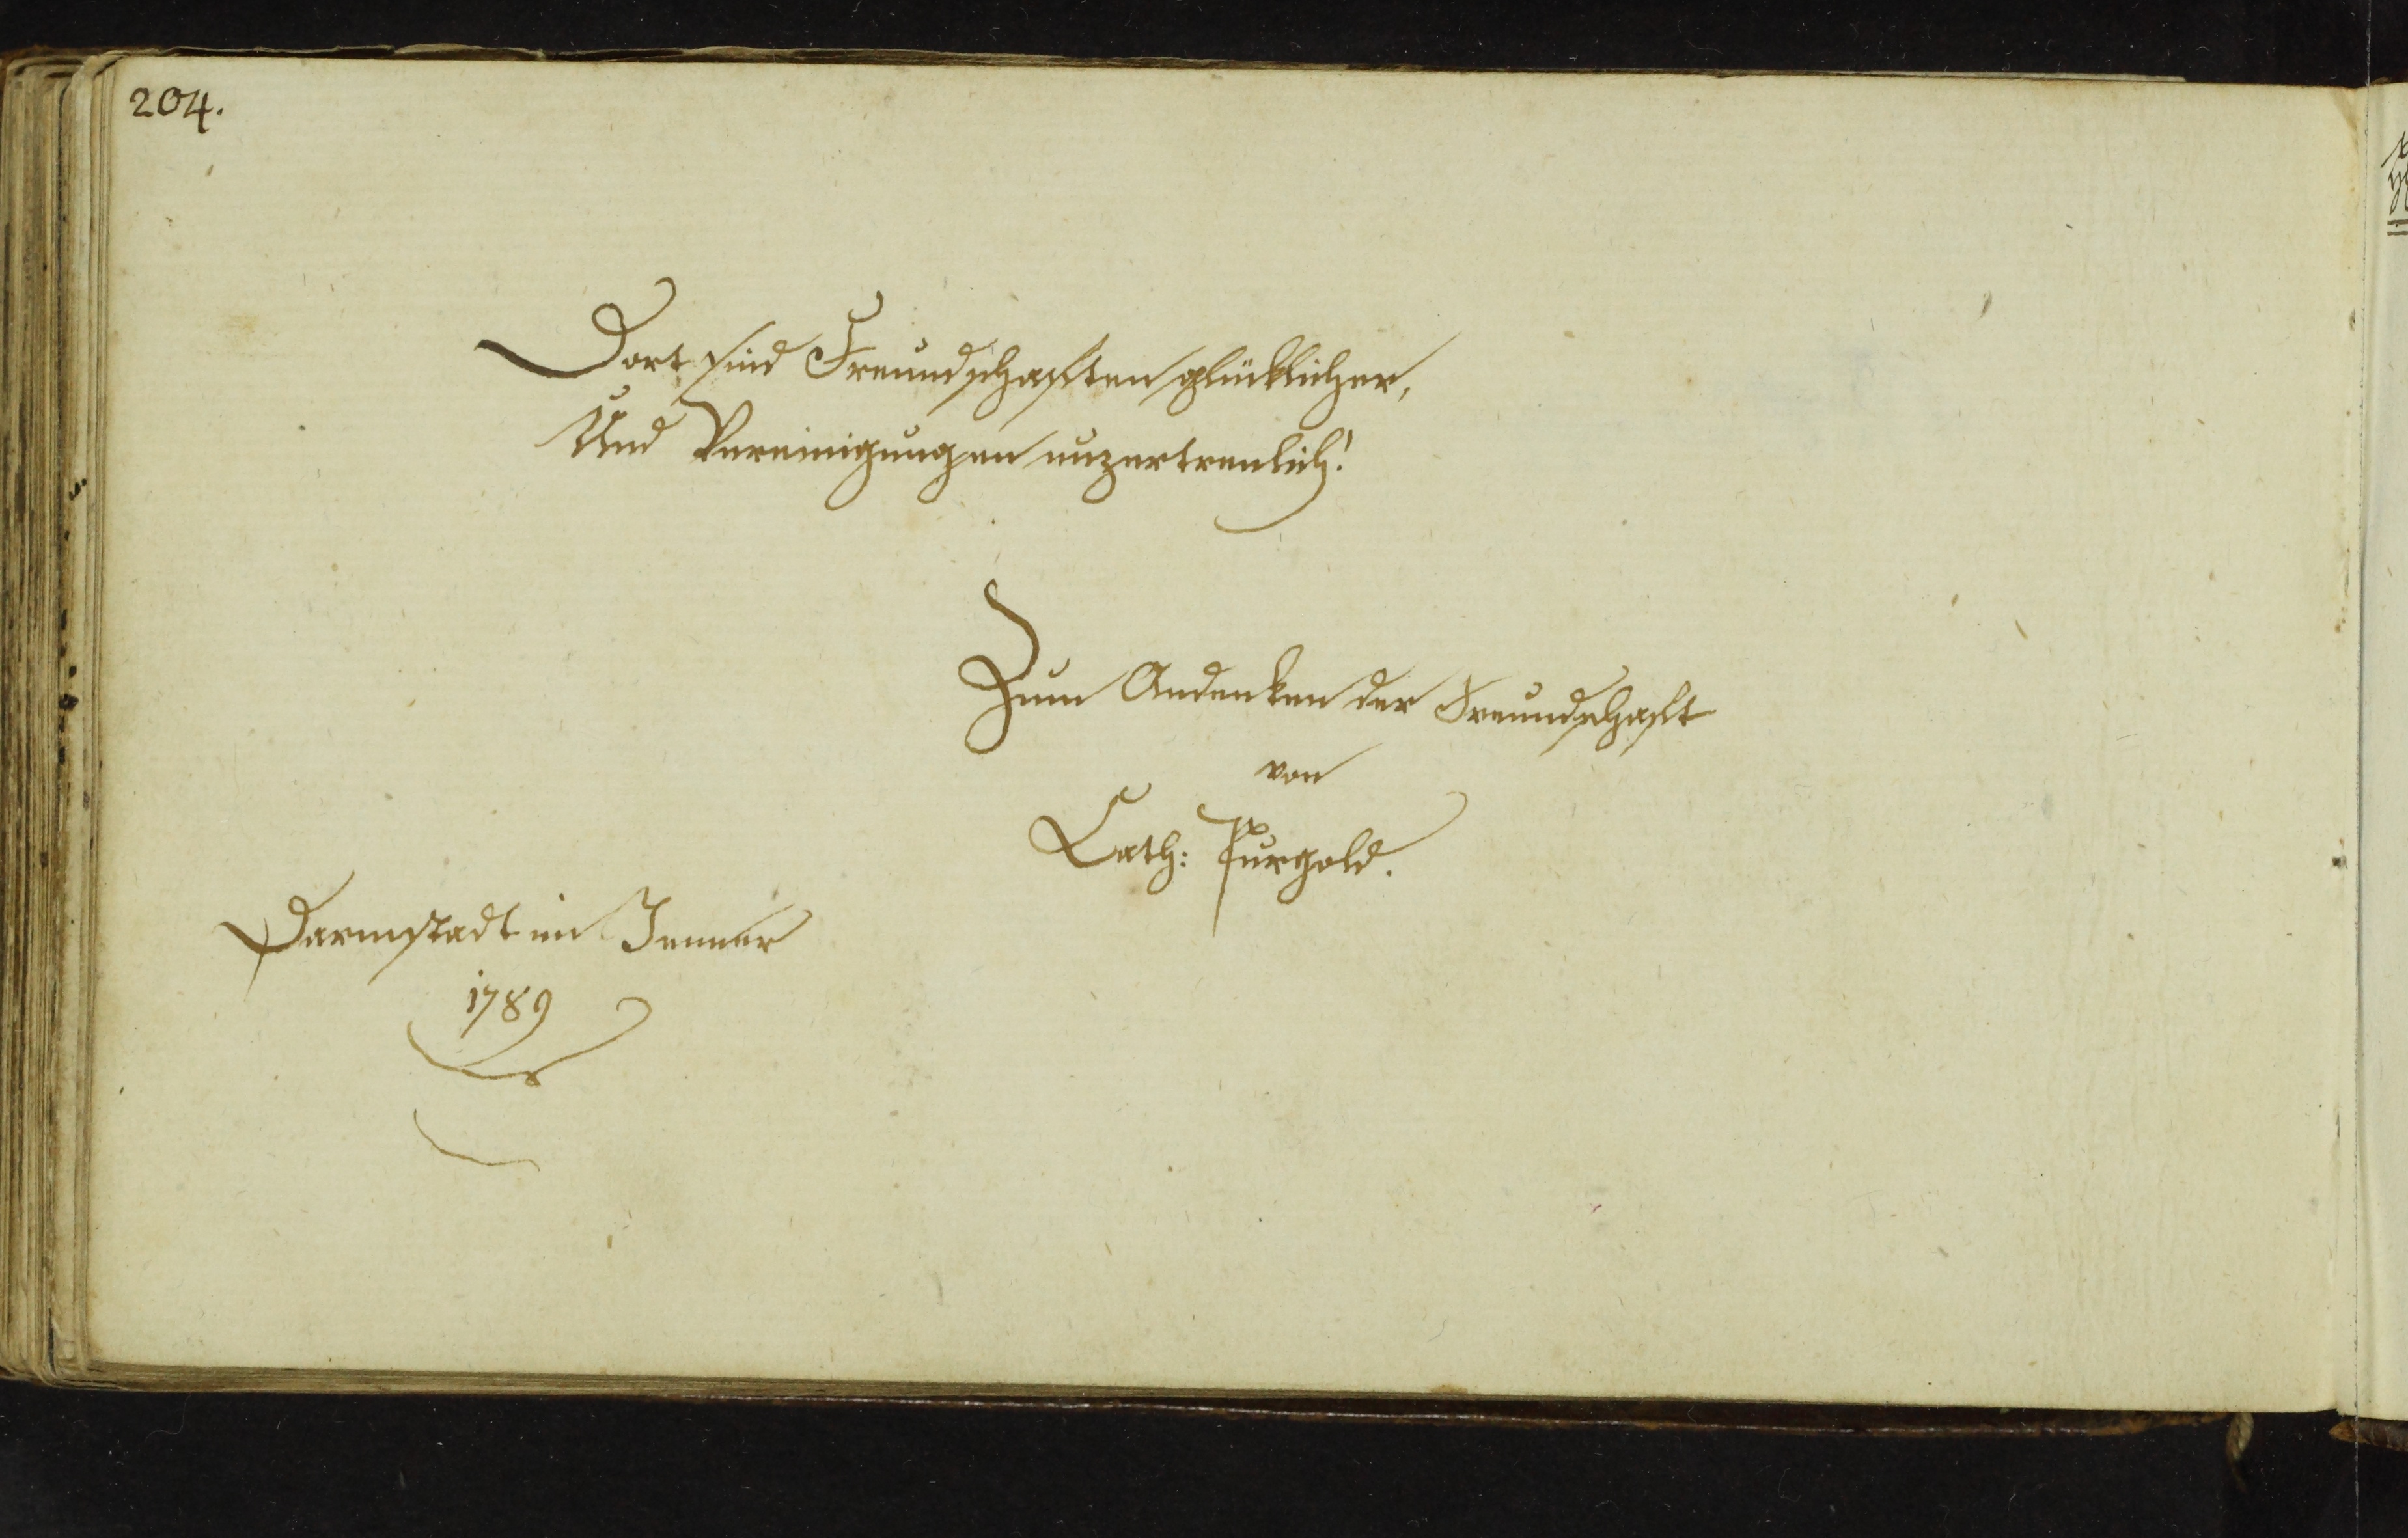 204.
Dort sind Freundschafften glücklicher,
Und Vereinigungen unzertrenlich!
Zum Andenken der Freundschafft
von
Cath: Purgold.
Darmstadt im Jenner
1789